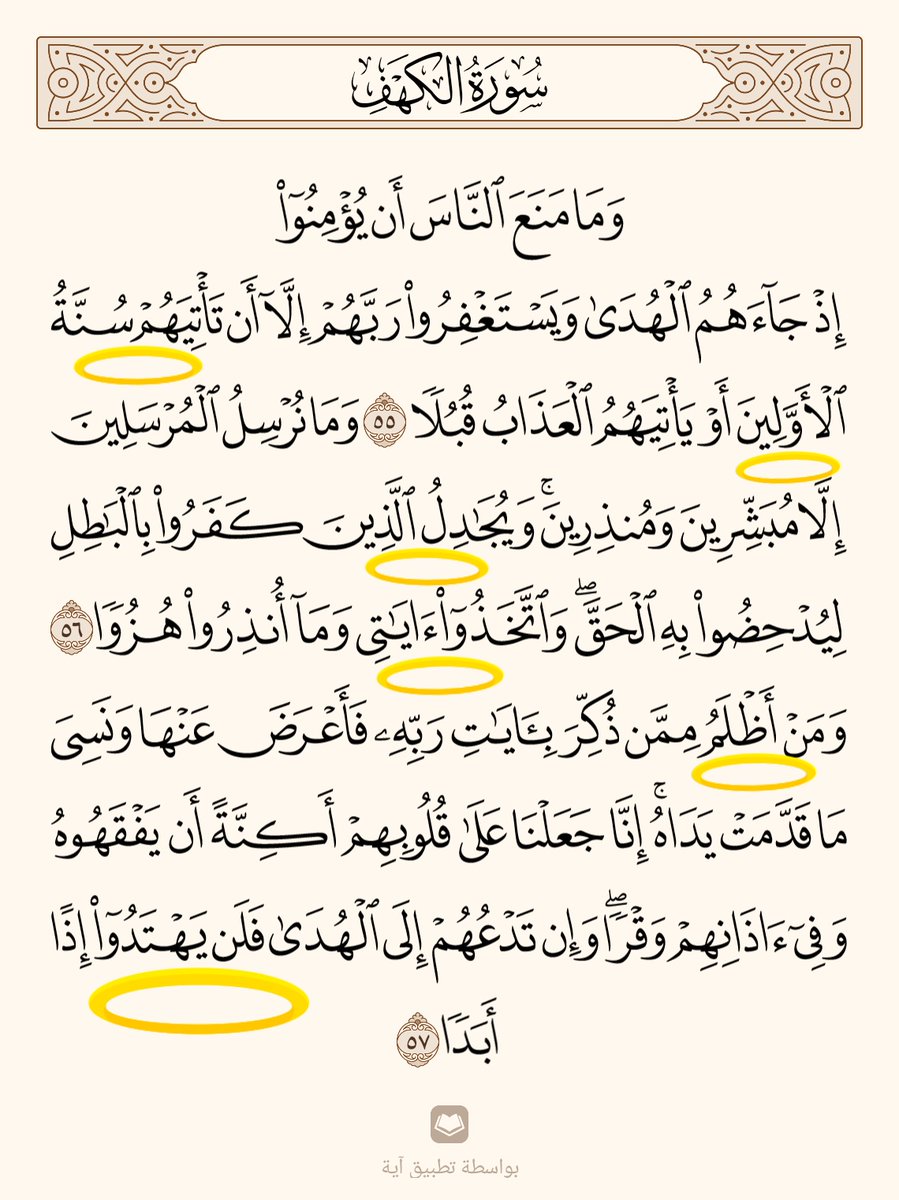 سُورَةُ الكَهْفِ
وَمَا مَنَعَ ٱلنَّاسَ أَن يُؤْمِنُوٓا۟
إِذْ جَآءَهُمُ ٱلْهُدَىٰ وَيَسْتَغْفِرُوا۟ رَبَّهُمْ إِلَّآ أَن تَأْتِيَهُمْ سُنَّةُ
ٱلْأَوَّلِينَ أَوْ يَأْتِيَهُمُ ٱلْعَذَابُ قُبُلًا ٥٥ وَمَا نُرْسِلُ ٱلْمُرْسَلِينَ
إِلَّا مُبَشِّرِينَ وَمُنذِرِينَ ۚ وَيُجَٰدِلُ ٱلَّذِينَ كَفَرُوا۟ بِٱلْبَٰطِلِ
لِيُدْحِضُوا۟ بِهِ ٱلْحَقَّ ۖ وَٱتَّخَذُوٓا۟ ءَايَٰتِى وَمَآ أُنذِرُوا۟ هُزُوًا ٥٦
وَمَنْ أَظْلَمُ مِمَّن ذُكِّرَ بِـَٔايَٰتِ رَبِّهِۦ فَأَعْرَضَ عَنْهَا وَنَسِىَ
مَا قَدَّمَتْ يَدَاهُ ۚ إِنَّا جَعَلْنَا عَلَىٰ قُلُوبِهِمْ أَكِنَّةً أَن يَفْقَهُوهُ
وَفِىٓ ءَاذَانِهِمْ وَقْرًا ۖ وَإِن تَدْعُهُمْ إِلَى ٱلْهُدَىٰ فَلَن يَهْتَدُوٓا۟ إِذًا
أَبَدًا ٥٧
بواسطة تطبيق آية